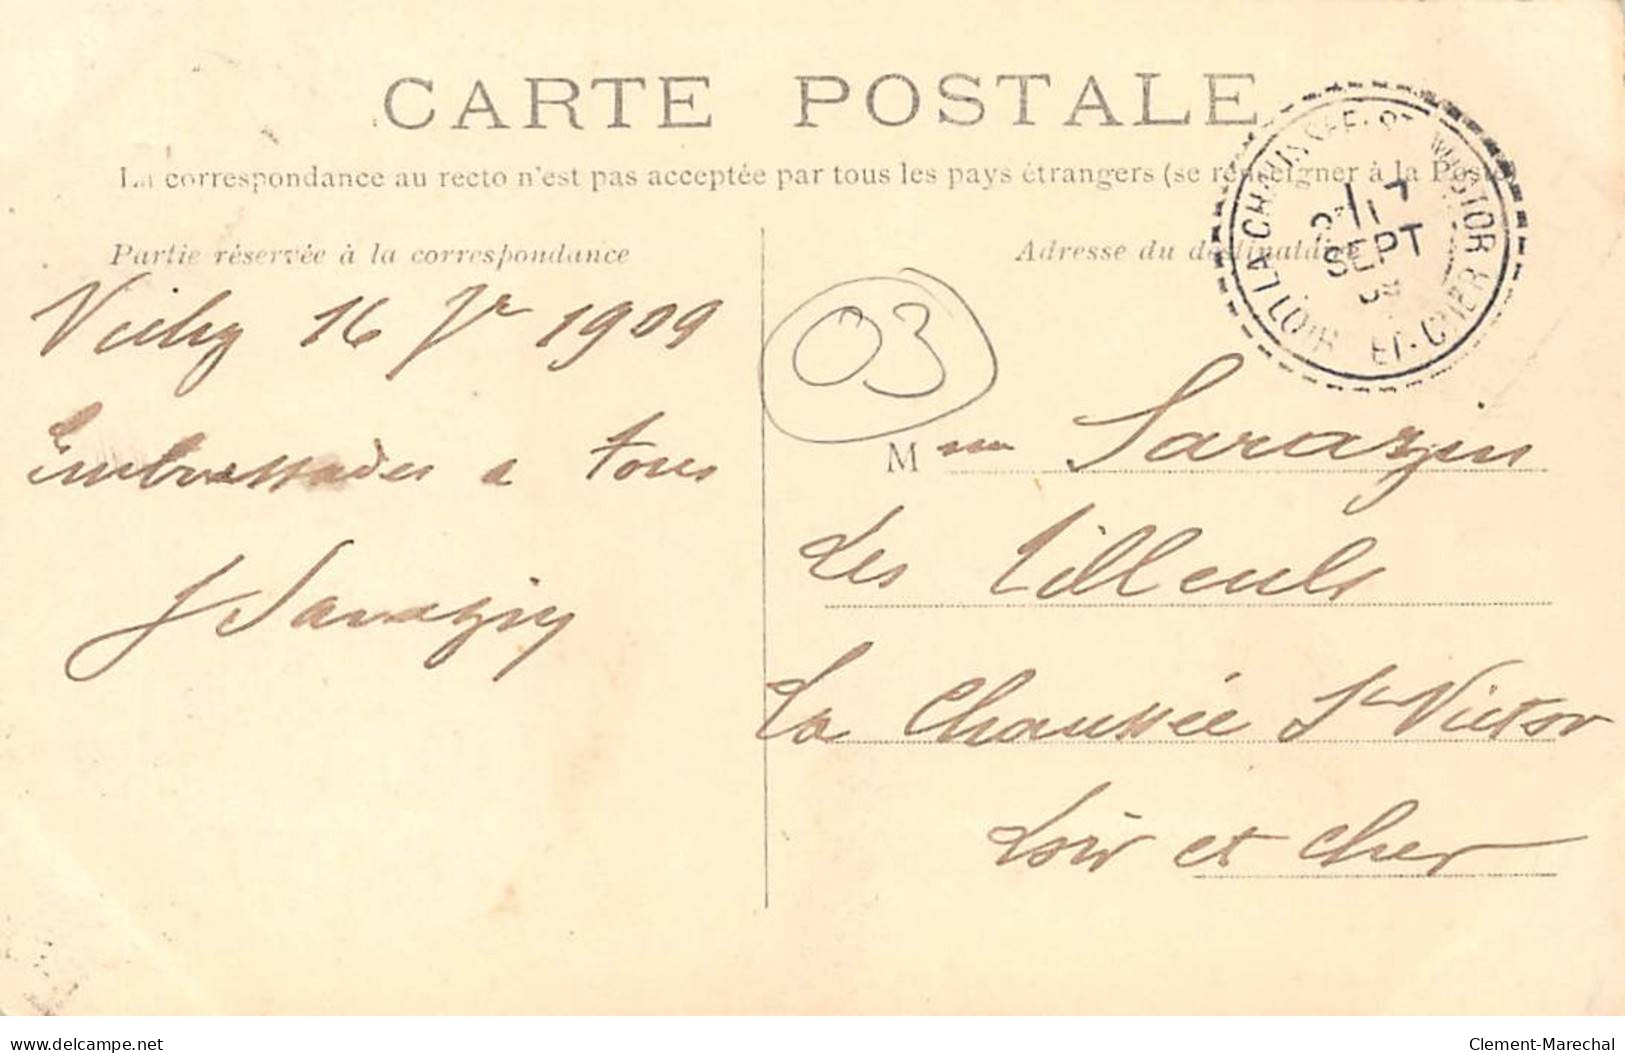 CARTE POSTALE
La correspondance au recto n'est pas acceptée par tous les pays étrangers (se renseigner à la Poste)
Partie réservée à la correspondance
Adresse du destinataire
LA CHAUSSEE-ST VICTOR
17
SEPT
09
LOIR-ET-CHER
Vichy 16 7re 1909
Embrassades a tous
J Sarazin
03
Mme Sarazin
Les Tilleuls
La Chaussée St Victor
Loir et Cher
delcampe.net
Clement-Marechal